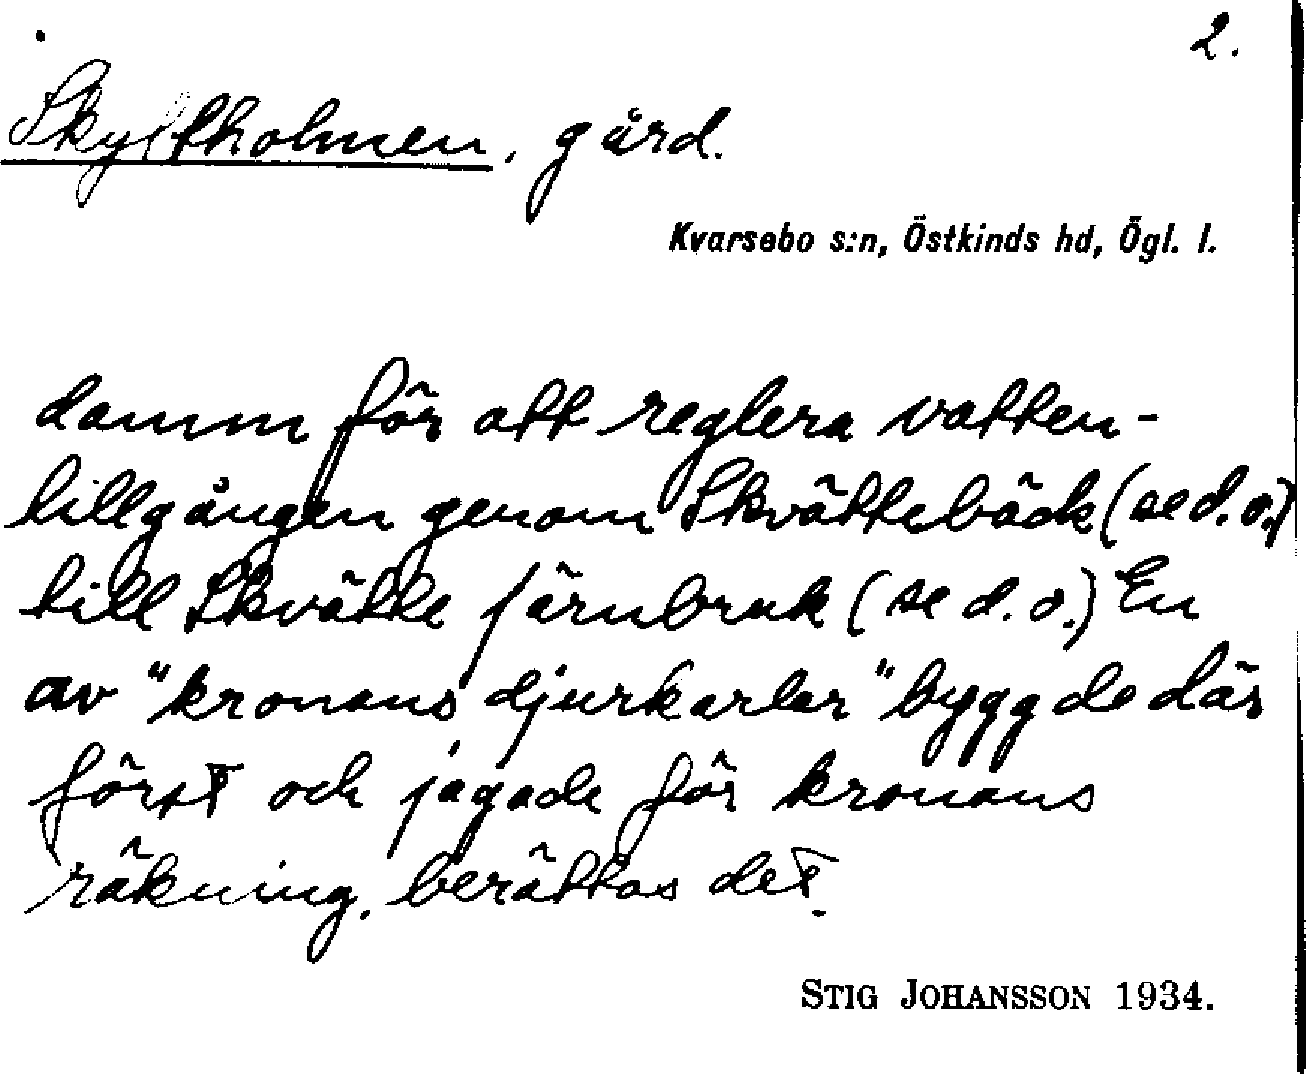 2.
Skyltholmen, gård.
Kvarsebo s:n, Östkinds hd, Ögl. l.
damm för att reglera vatten-
tillgången genom Skvättebäck (se d. o.)
till Skvätte järnbruk (se d. o.) En
av "kronans djurkarlar" byggde där
först och jagade för kronans
räkning, berättas det.
STIG JOHANSSON 1934.